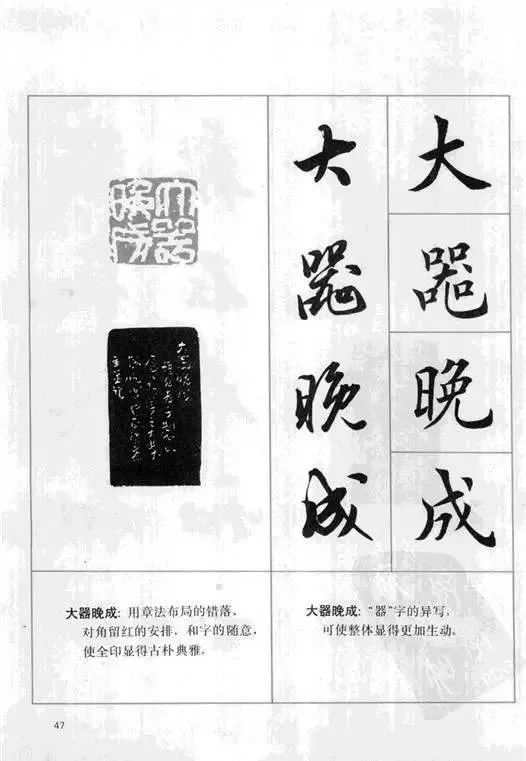 大器晚成
大器晚成
大器晚成
大器晚成: 用章法布局的错落、
对角留红的安排, 和字的随意,
使全印显得古朴典雅。
大器晚成: “器”字的异写,
可使整体显得更加生动。
47